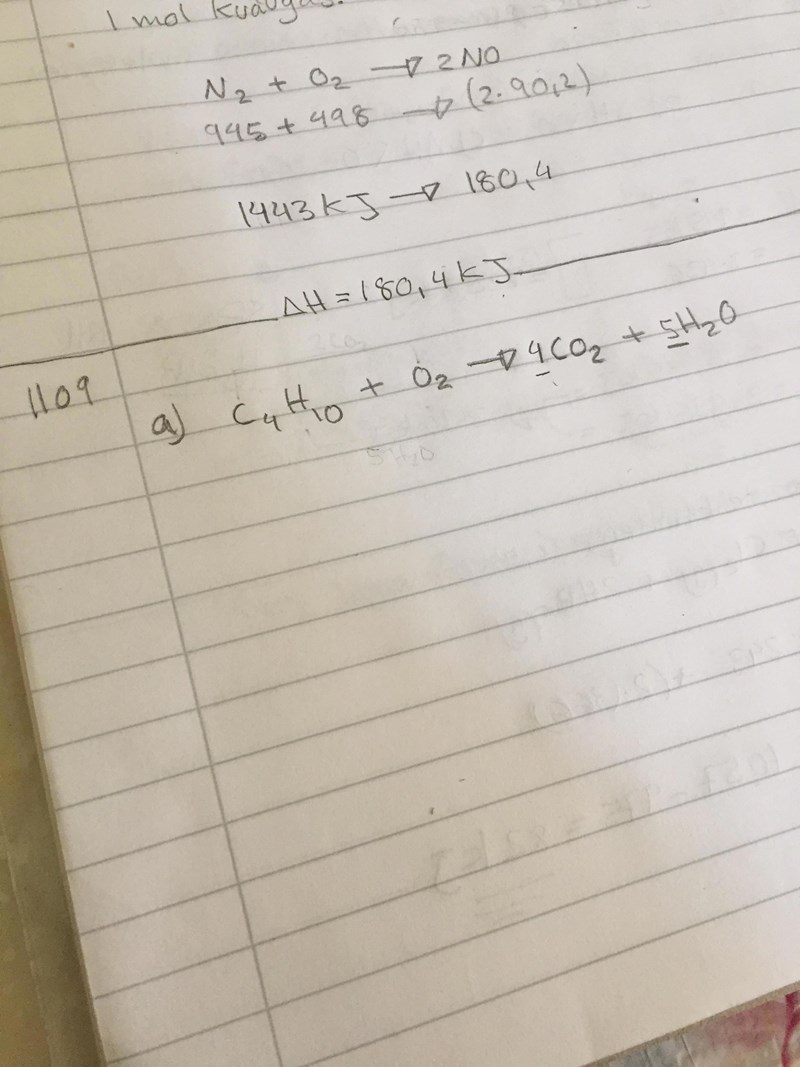 1 mol kvävgas.
N₂ + O₂ → 2NO
945 + 498 → (2·90,2)
1443 kJ → 180,4
ΔH = 180,4 kJ
1109 a) C₄H₁₀ + O₂ → 4CO₂ + 5H₂O
5H₂O